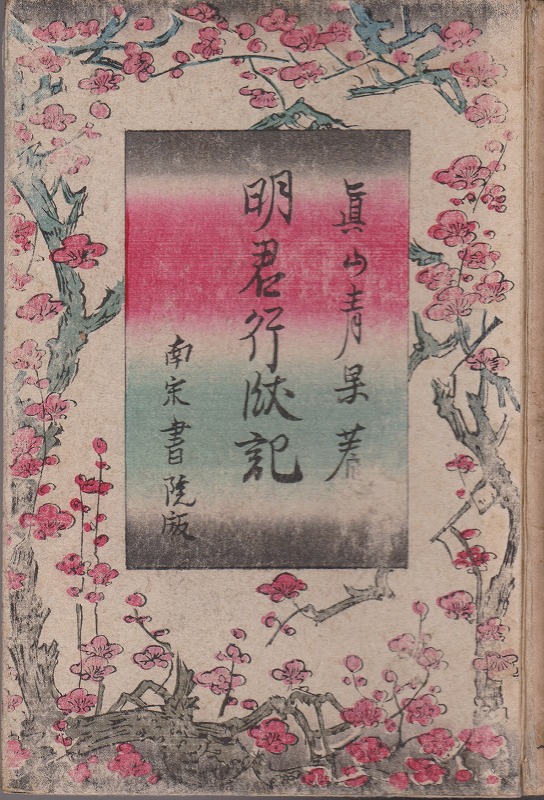 眞山青果著
明君行狀記
南宋書院版